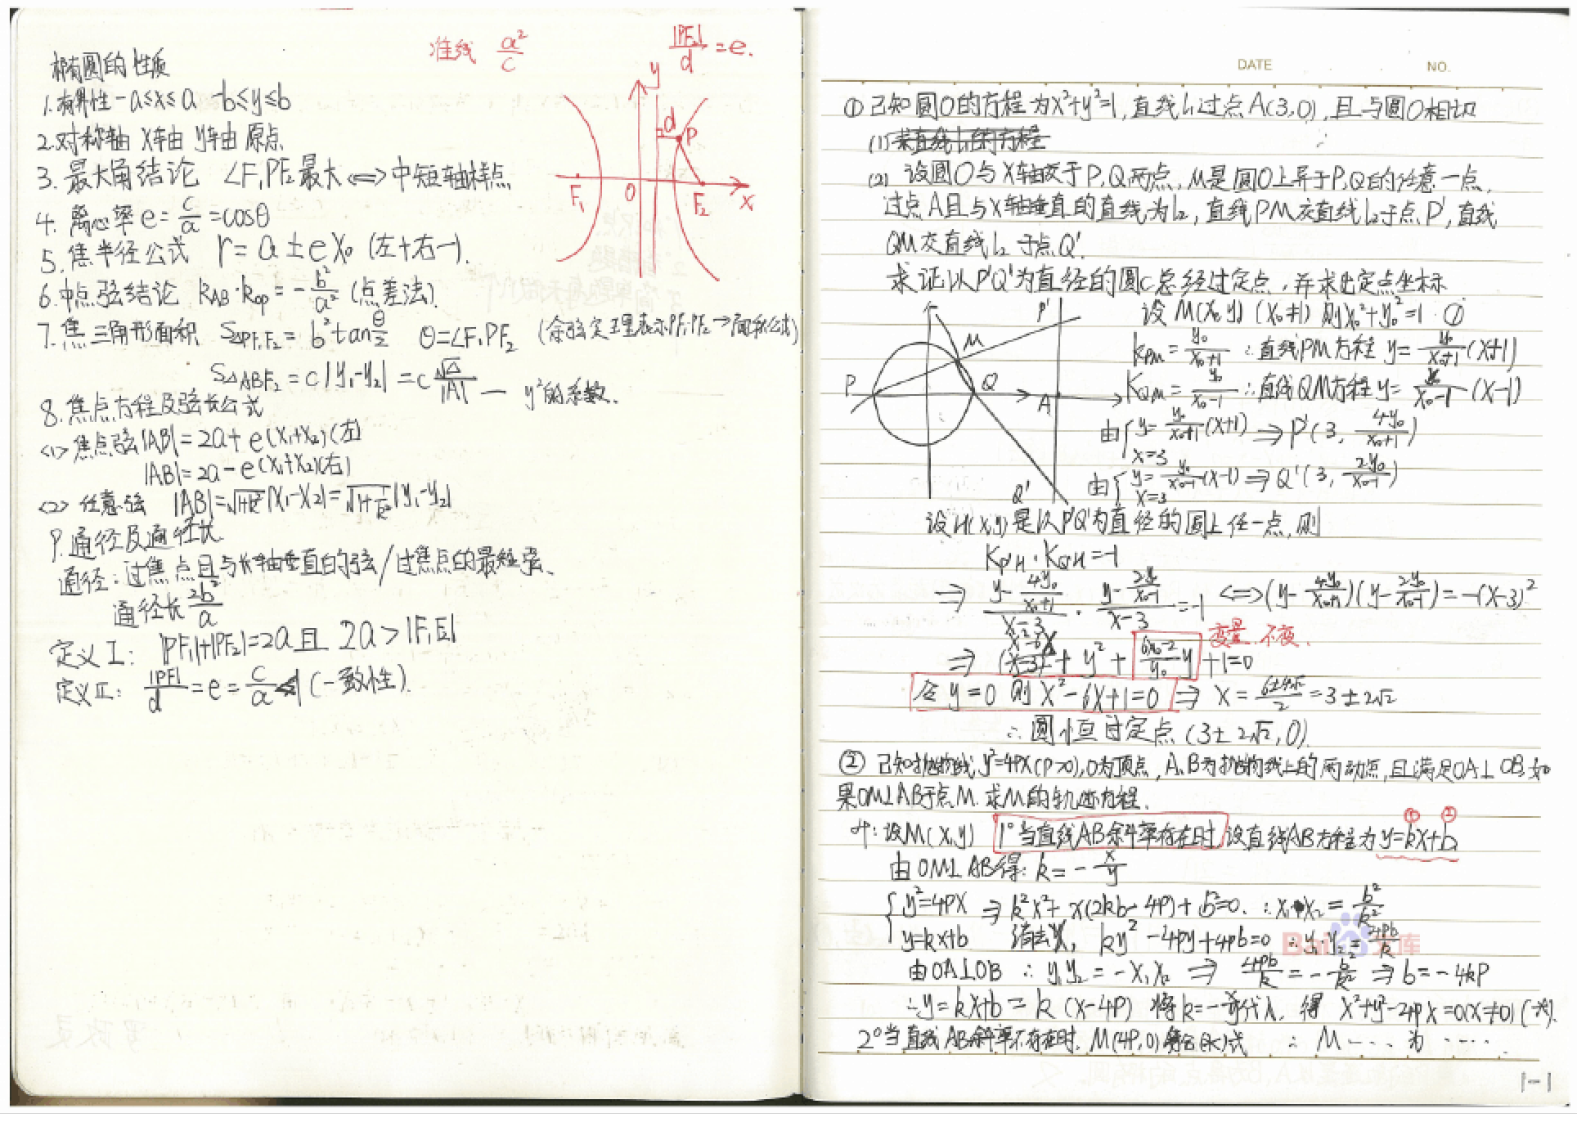 椭圆的性质
1.有界性 -a≤x≤a -b≤y≤b
2.对称轴 x轴 y轴 原点
3.最大角结论 ∠F₁PF₂最大⟺中短轴样点
4.离心率e=c/a=cosθ
5.焦半径公式 r=a±ex₀ (左+右-).
6.中点弦结论 k_AB·k_op=-b²/a² (点差法).
7.焦三角形面积 S△PF₁F₂=b²tanθ/2 θ=∠F₁PF₂ (余弦定理表示PF₁·PF₂→面积公式)
S△ABF₂=c|y₁-y₂|=c√△/|A| — y²的系数.
8.焦点方程及弦长公式
<1>焦点弦|AB|=2a+e(x₁+x₂)(左)
|AB|=2a-e(x₁+x₂)(右)
<2>任意弦 |AB|=√1+k²|x₁-x₂|=√1+1/k²|y₁-y₂|
9.通径及通径长
通径:过焦点且与长轴垂直的弦/过焦点的最短弦.
通径长2b²/a
定义I: |PF₁|+|PF₂|=2a且 2a>|F₁F₂|
定义II: |PF|/d=e=c/a<1 (一致性).
准线 a²/c
|PF₂|/d=e.
y
d
P
F₁
O
F₂
x
DATE NO.
①已知圆O的方程为x²+y²=1,直线l₁过点A(3,0),且与圆O相切
(1)求直线l₁的方程
(2) 设圆O与X轴交于P,Q两点,M是圆O上异于P,Q的任意一点,
过点A且与X轴垂直的直线为l₂,直线PM交直线l₂于点P',直线
QM交直线l₂于点Q'.
求证以P'Q'为直径的圆C总经过定点,并求出定点坐标
P'
M
P
Q
A
Q'
设M(x₀,y₀) (x₀≠1) 则x₀²+y₀²=1 ①
k_PM=y₀/x₀+1 ∴直线PM方程 y=y₀/x₀+1(x+1)
k_QM=y₀/x₀-1 ∴直线QM方程 y=y₀/x₀-1(x-1)
由{y=y₀/x₀+1(x+1) x=3 ⇒P'(3, 4y₀/x₀+1)
由{y=y₀/x₀-1(x-1) x=3 ⇒Q'(3, 2y₀/x₀-1)
设H(x,y)是以P'Q'为直径的圆上任一点,则
K_P'H·K_Q'H=-1
⇒ y-4y₀/x₀+1/x-3 · y-2y₀/x₀-1/x-3=-1 ⟺(y-4y₀/x₀+1)(y-2y₀/x₀-1)=-(x-3)²
变量 不变.
⇒ x²-6x + y² + 6x₀-2/y₀ y +1=0
令y=0 则x²-6x+1=0 ⇒ x=6±4√2/2=3±2√2
∴圆恒过定点(3±2√2,0).
②已知抛物线y²=4px(p>0),O为顶点,A,B为抛物线上的两动点,且满足OA⊥OB,如
果OM⊥AB于点M.求M的轨迹方程.
设M(x,y) 1°当直线AB斜率存在时,设直线AB方程为y=kx+b
① ②
由OM⊥AB得:k=-x/y
{y²=4px ⇒k²x²+x(2kb-4p)+b²=0. ∴x₁·x₂=b²/k²
y=kx+b 消去x, ky²-4py+4pb=0 ∴y₁y₂=4pb/k
由OA⊥OB ∴y₁y₂=-x₁x₂ ⇒ 4pb/k=-b²/k² ⇒b=-4kp
∴y=kx+b=k(x-4p) 将k=-x/y代入,得 x²+y²-4px=0(x≠0)(※).
2°当直线AB斜率不存在时,M(4p,0)符合(※)式 ∴M----为----.
1-1